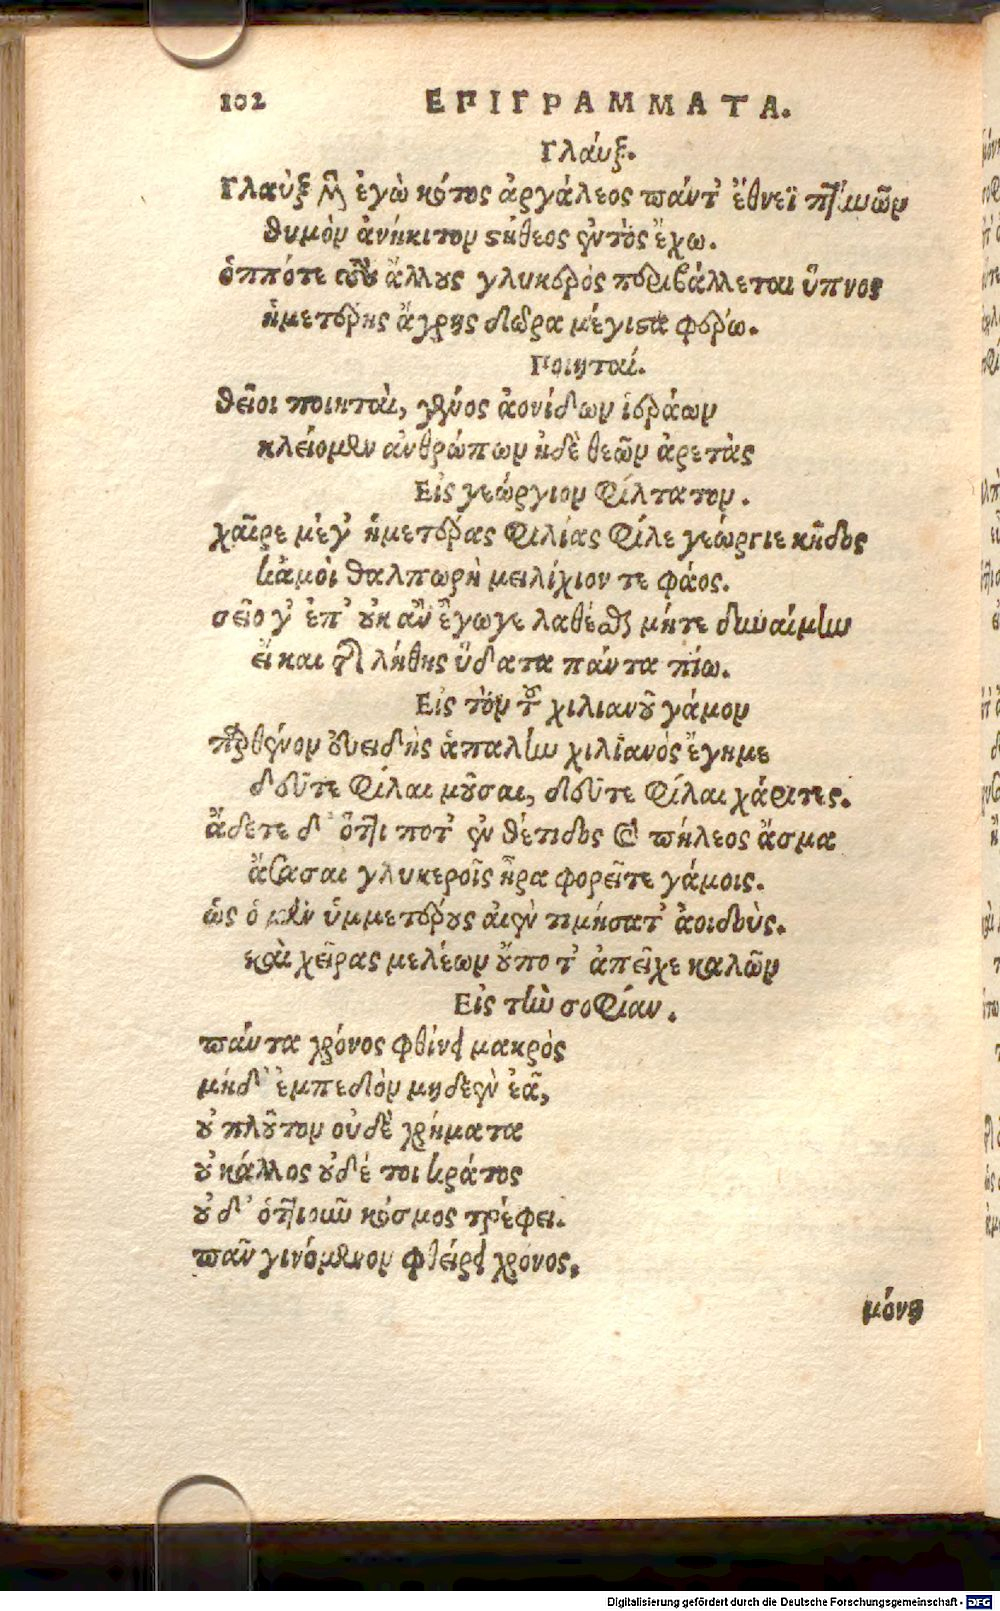 102 ΕΠΙΓΡΑΜΜΑΤΑ.
Γλάυξ.
Γλαὺξ μὲν ἐγὼ κότος ἀργάλεος πάντ' ἔθνεϊ πτηνῶν
θυμὸν ἀνήκιτον στήθεος ἐντὸς ἔχω.
ὁππότε τοὺς ἄλλους γλυκερὸς περιβάλλεται ὕπνος
ἡμετέρης ἄγρης δῶρα μέγιστα φέρω.
Ποιηταί.
θεῖοι ποιηταὶ, γένος ἀονίδων ἱεράων
κλείομεν ἀνθρώπων ἠδὲ θεῶν ἀρετὰς
Εἰς γεώργιον φίλτατον.
χαῖρε μέγ' ἡμετέρας φιλίας φίλε γεώργιε κῆδος
κἀμοὶ θαλπωρὴ μειλίχιον τε φάος.
σεῖο γ' ἐπ' οὐκ ἂν ἔγωγε λαθέσθαι μήτε δυναίμην
εἴ και τῆς λήθης ὕδατα πάντα πίω.
Εἰς τὸν τοῦ χιλιανοῦ γάμον
παρθένον οὐειδὴς ἁπαλὴν χιλϊανὸς ἔγημε
δεῦτε φίλαι μοῦσαι, δεῦτε φίλαι χάριτες.
ἄδετε δ' ὅττι ποτ' ἐν θέτιδος καὶ πήλεος ἄσμα
ἄσασαι γλυκεροῖς ἦρα φορεῖτε γάμοις.
ὡς ὁ μὲν ὑμμετέρους αἰὲν τιμήσατ' ἀοιδοὺς.
καὶ χεῖρας μελέων οὔποτ' ἀπεῖχε καλῶν
Εἰς τὴν σοφίαν.
πάντα χρόνος φθίνει μακρὸς
μήδ' ἐμπεδὸν μηδεὲν ἐᾶ,
οὐ πλοῦτον οὐδὲ χρήματα
οὐ κάλλος οὐδέ τοι κράτος
οὐδ' ὁτῆιουῦ κόσμος τρέφει.
πᾶν γινόμενον φθείρει χρόνος,
μόνη
Digitalisierung gefördert durch die Deutsche Forschungsgemeinschaft - DFG